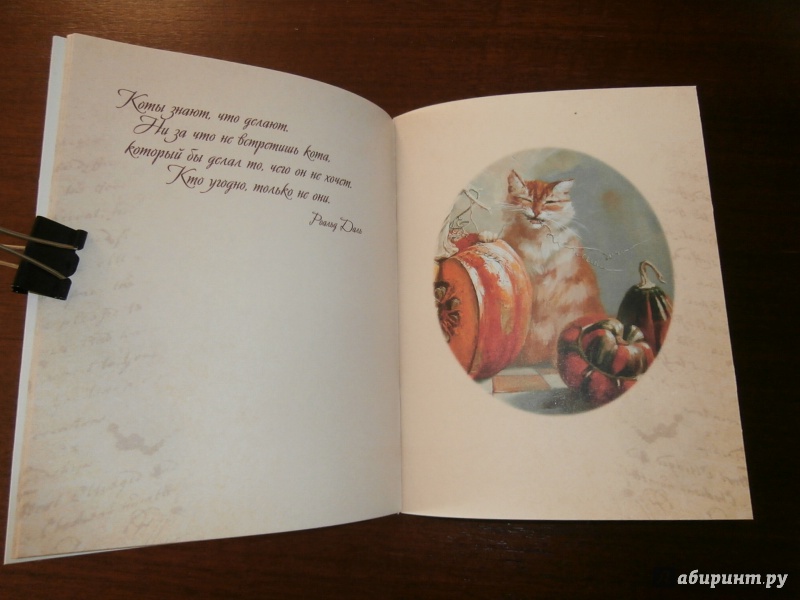 Коты знают, что делают.
Ни за что не встретишь кота,
который бы делал то, чего он не хочет.
Кто угодно, только не они.
Роальд Даль
абиринт.ру